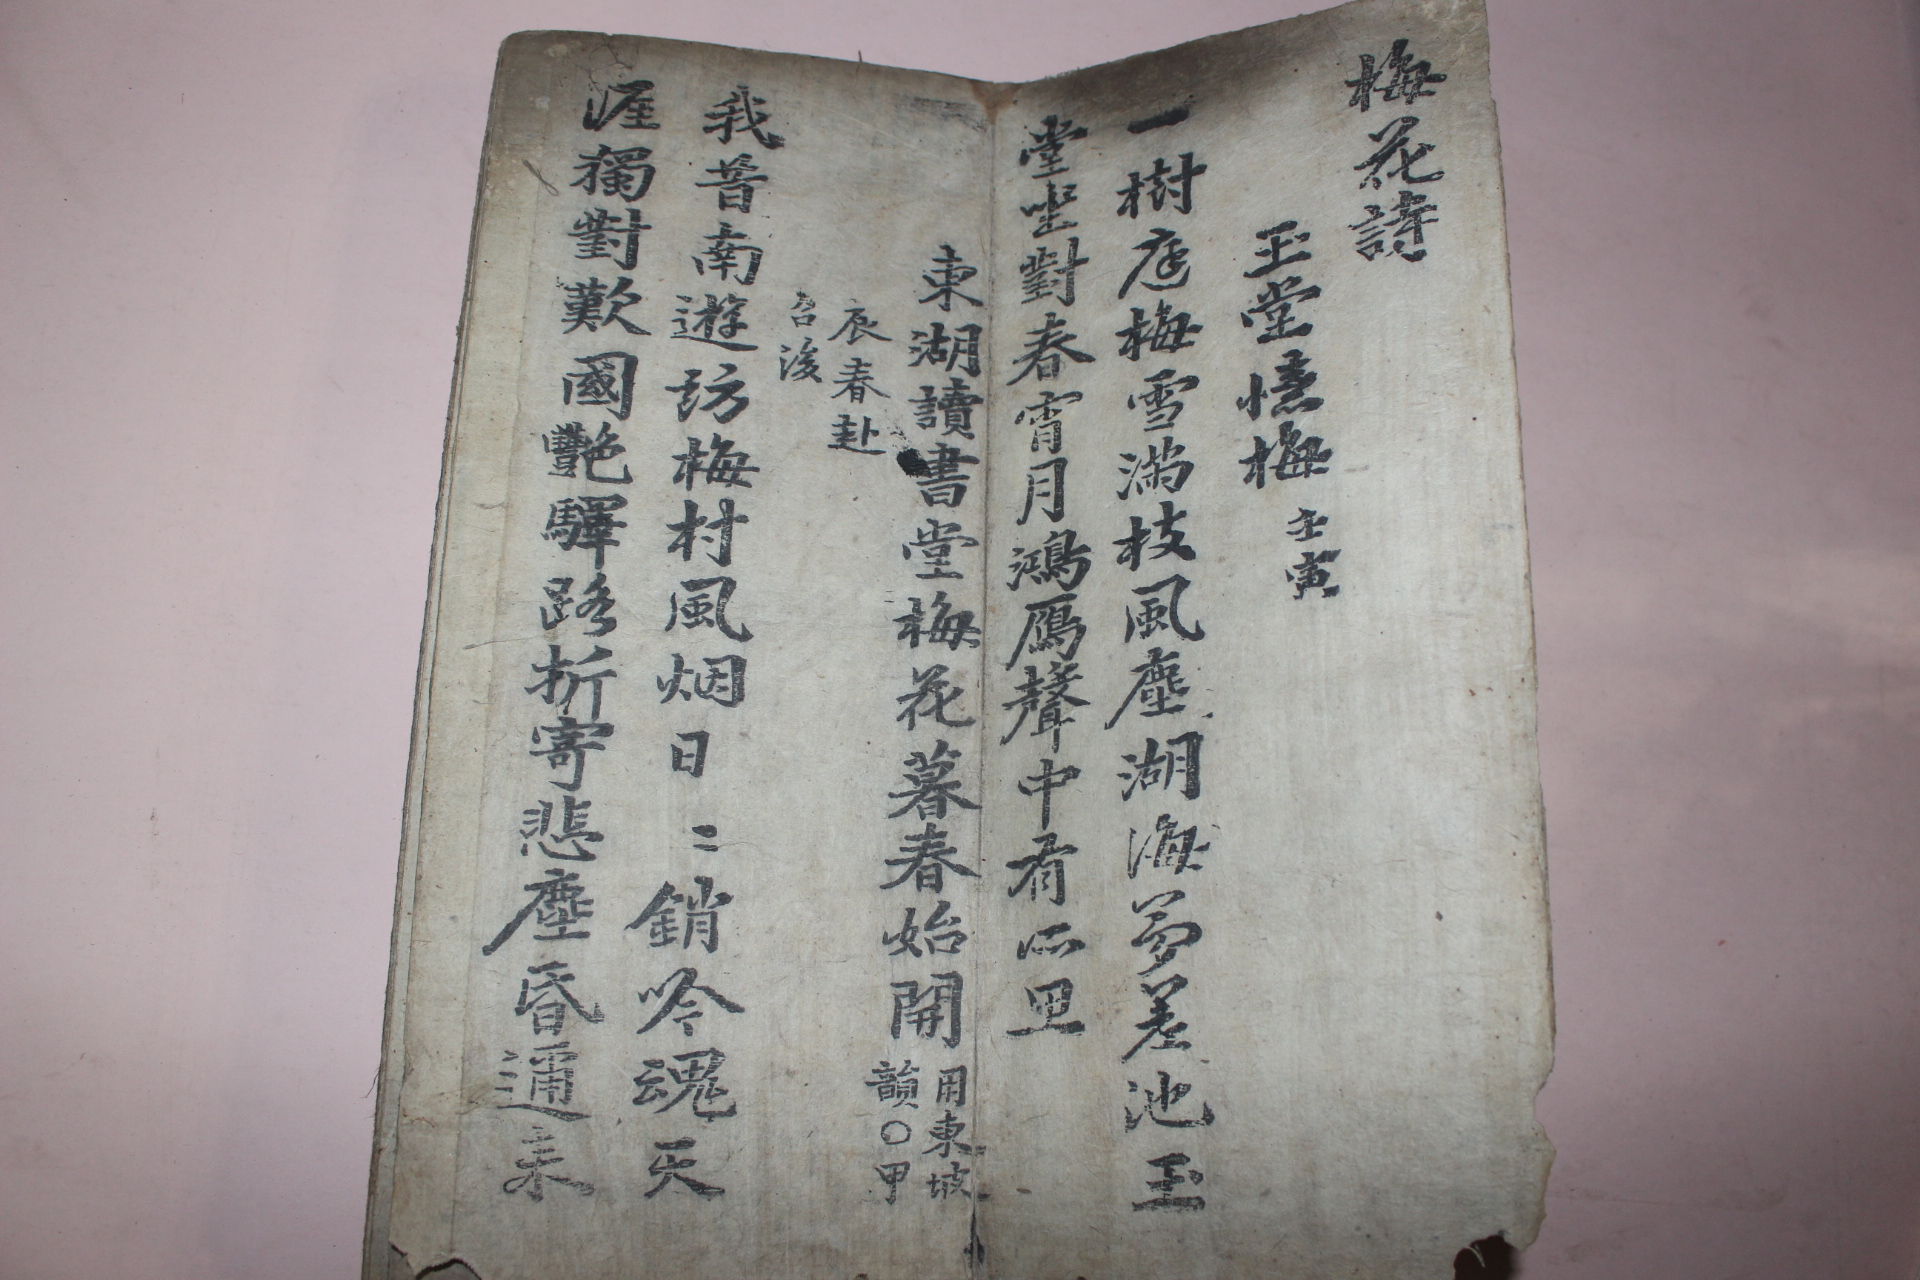 梅花詩
玉堂憶梅 壬寅
一樹庭梅雪滿枝風塵湖海夢差池玉
堂坐對春宵月鴻鴈聲中有所思
東湖讀書堂梅花暮春始開 用東坡
韻〇甲
辰春赴
召後
我昔南遊訪梅村風烟日〻銷吟魂天
涯獨對歎國艶驛路折寄悲塵昏邇来